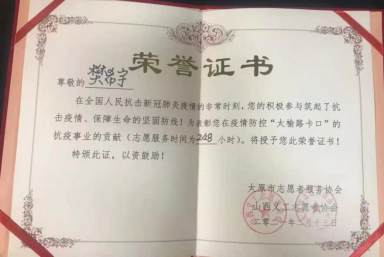 荣誉证书
尊敬的樊帛宇
在全国人民抗击新冠肺炎疫情的非常时刻，您的积极参与筑起了抗
击疫情、保障生命的坚固防线！为表彰您在疫情防控“太榆路卡口”的
抗疫事业的贡献（志愿服务时间为248小时）。将授予您此荣誉证书！
特颁此证，以资鼓励！
太原市志愿者服务协会
山西义工志愿者协会
二零二一年二月十三日